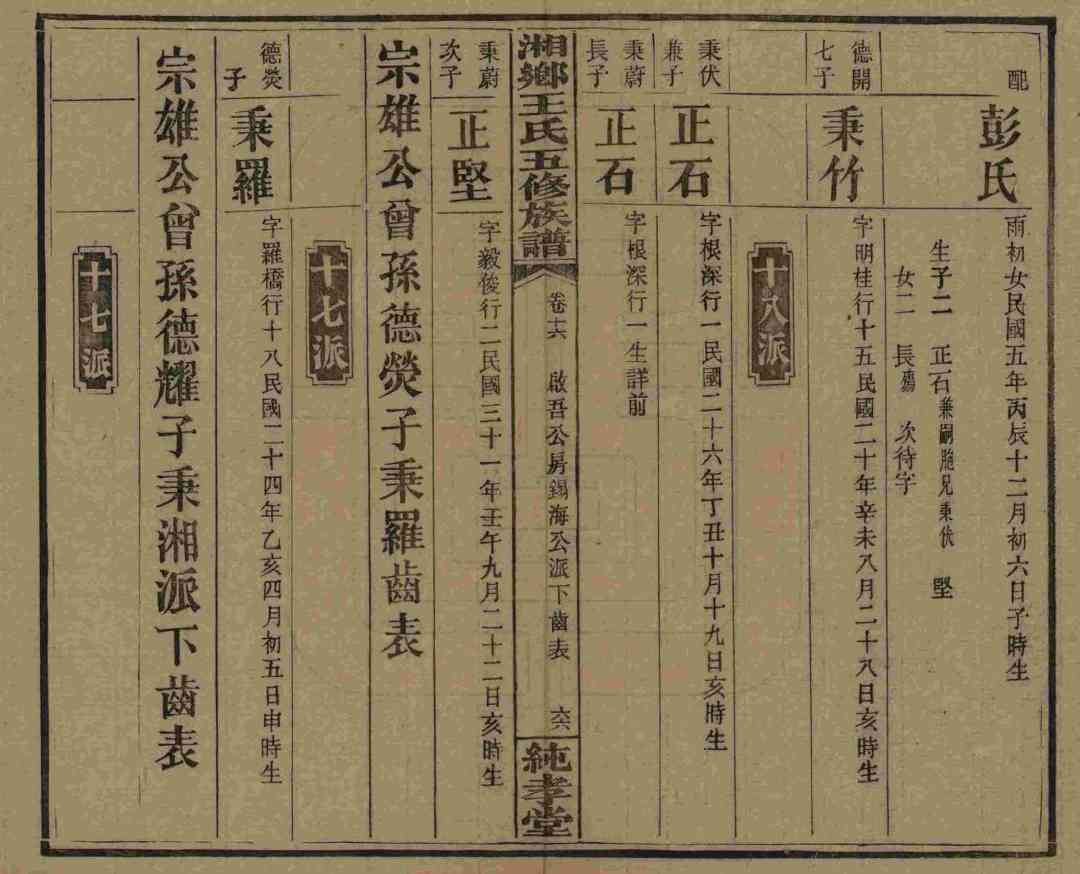 配
彭氏
雨初女民國五年丙辰十二月初六日子時生
生子二　正石兼嗣胞兄秉伏　堅
女二　長殤　次待字
德開七子
秉竹
字明桂行十五民國二十年辛未八月二十八日亥時生
十八派
秉伏兼子
正石
字根深行一民國二十六年丁丑十月十九日亥時生
秉蔚長子
正石
字根深行一生詳前
湘鄉王氏五修族譜
卷十六
啟吾公房錫海公派下齒表
六六
純孝堂
秉蔚次子
正堅
字毅俊行二民國三十一年壬午九月二十二日亥時生
宗雄公曾孫德熒子秉羅齒表
十七派
德熒子
秉羅
字羅橋行十八民國二十四年乙亥四月初五日申時生
宗雄公曾孫德耀子秉湘派下齒表
十七派